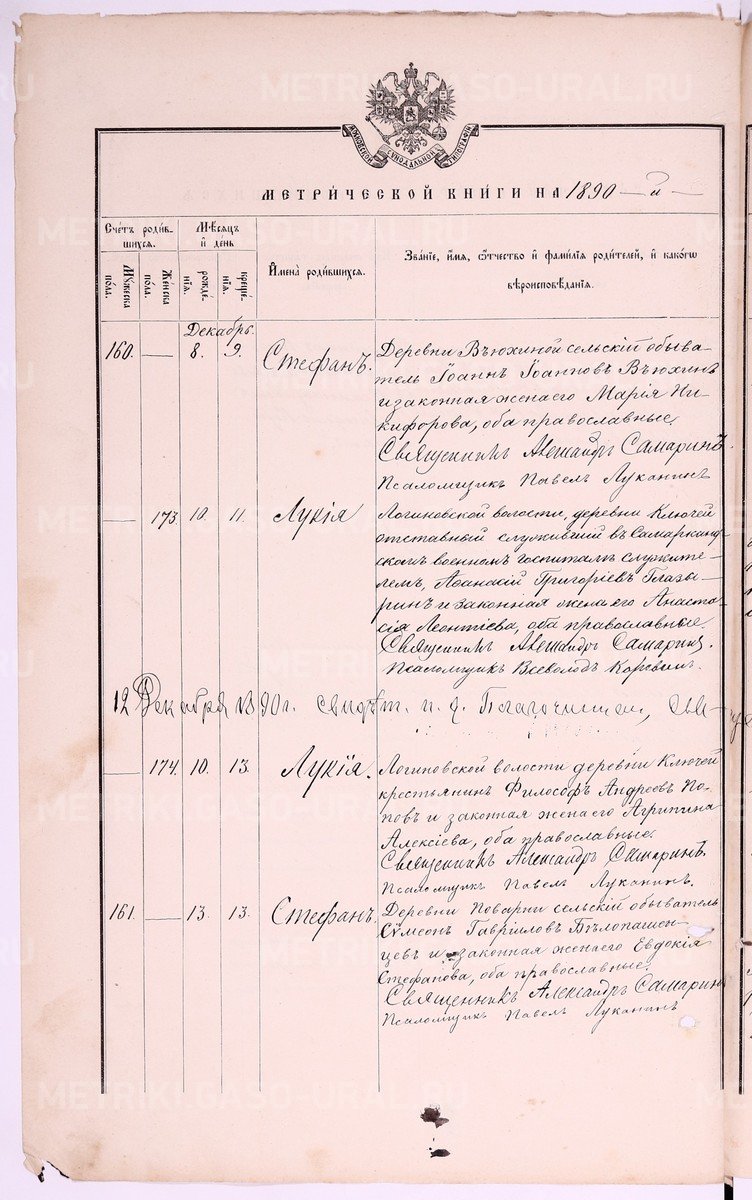 МОСКОВСКОЙ СѴНОДАЛЬНОЙ ТИПОГРАФІИ
МЕТРИ́ЧЕСКОЙ КНИ́ГИ НА 1890 — й —
Сче́тъ роди́в-
шихся.
Мѣ́сяцъ
и҆ де́нь
Му́жеска
по́ла.
Же́нска
по́ла.
рожде́-
нія.
креще́-
нія.
И҆мена̀ роди́вшихся.
Зва́ніе, и҆́мя, ѻ҆́тчество и҆ фами́лія роди́телей, и҆ како́гѡ
вѣроисповѣ́данія.
Декабрь.
160. — 8. 9. Стефанъ.
Деревни Вьюхиной сельскій обыва-
тель Іоаннъ Іоанновъ Вьюхинъ
и законная жена его Марія Ни-
кифорова, оба православные
Священникъ Александръ Самаринъ
Псаломщикъ Павелъ Луканинъ
— 173. 10. 11. Лукія
Логиновской волости, деревни Ключей
отставный служившій въ Самарканд-
скомъ военномъ госпиталѣ служите-
лемъ, Аѳанасій Григоріевъ Глазы-
ринъ и законная жена его Анаста-
сія Леонтіева, оба православные.
Священникъ Александръ Самаринъ.
Псаломщикъ Всеволодъ Коровинъ.
12 Декабря 1890 г. свидѣт. и. д. Благочиннаго,
— 174. 10. 13. Лукія.
Логиновской волости деревни Ключей
крестьянинъ Философъ Андреевъ По-
повъ и законная жена его Агрипина
Алексіева, оба православные.
Священникъ Александръ Самаринъ.
Псаломщикъ Павелъ Луканинъ.
161. — 13. 13. Стефанъ.
Деревни Поварни сельскій обыватель
Сѵмеонъ Гавріиловъ Бѣлопашен-
цевъ и законная жена его Евдокія
Стефанова, оба православные.
Священникъ Александръ Самаринъ
Псаломщикъ Павелъ Луканинъ
METRIKI.GASO-URAL.RU